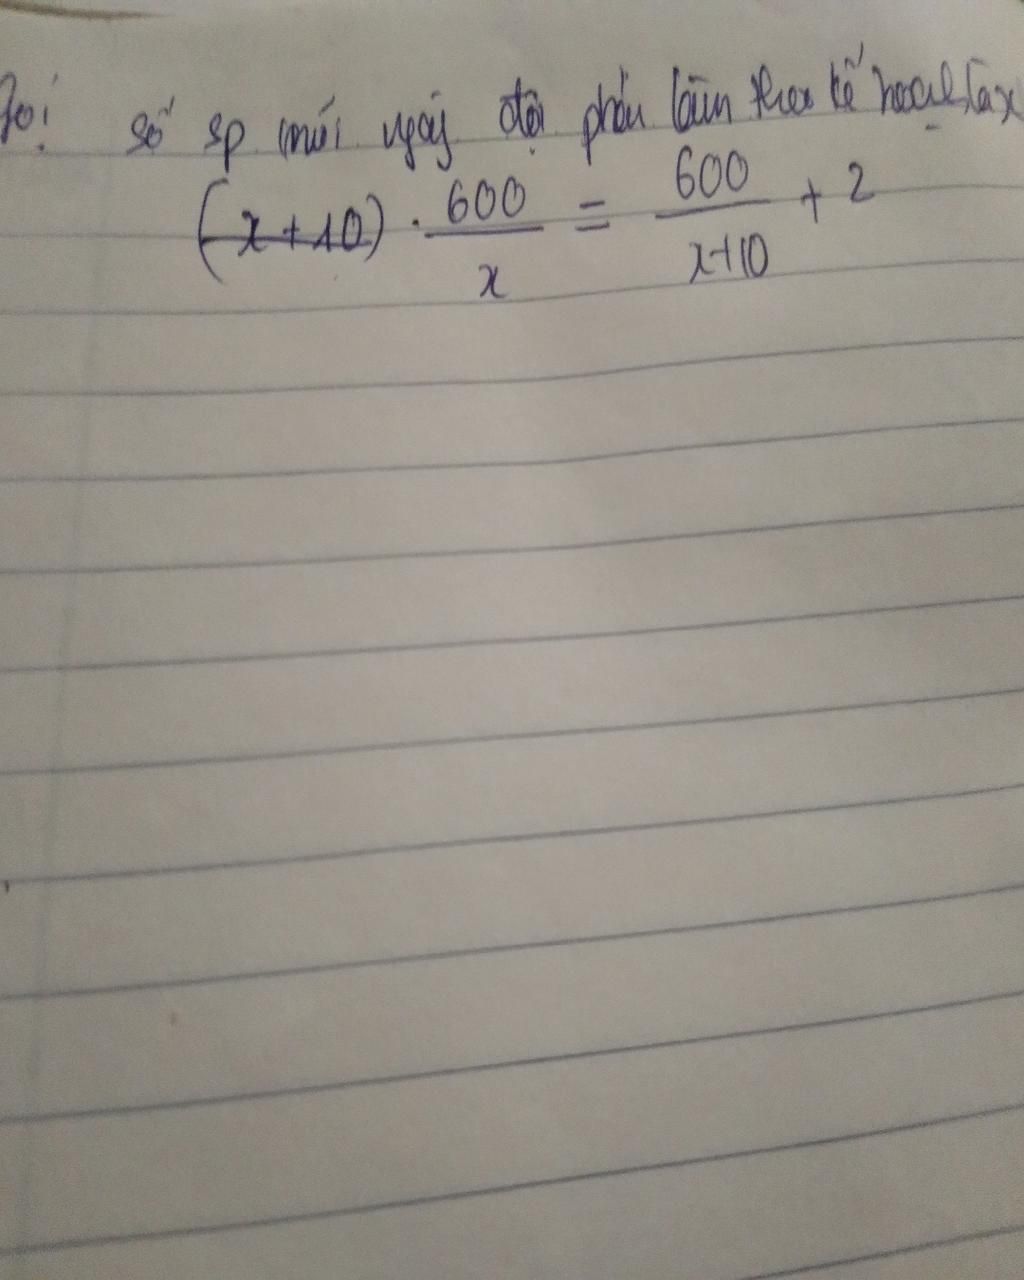 Gọi số sp mỗi ngày đội phải làm theo kế hoạch là x
(x+10) · 600/x = 600/x+10 + 2